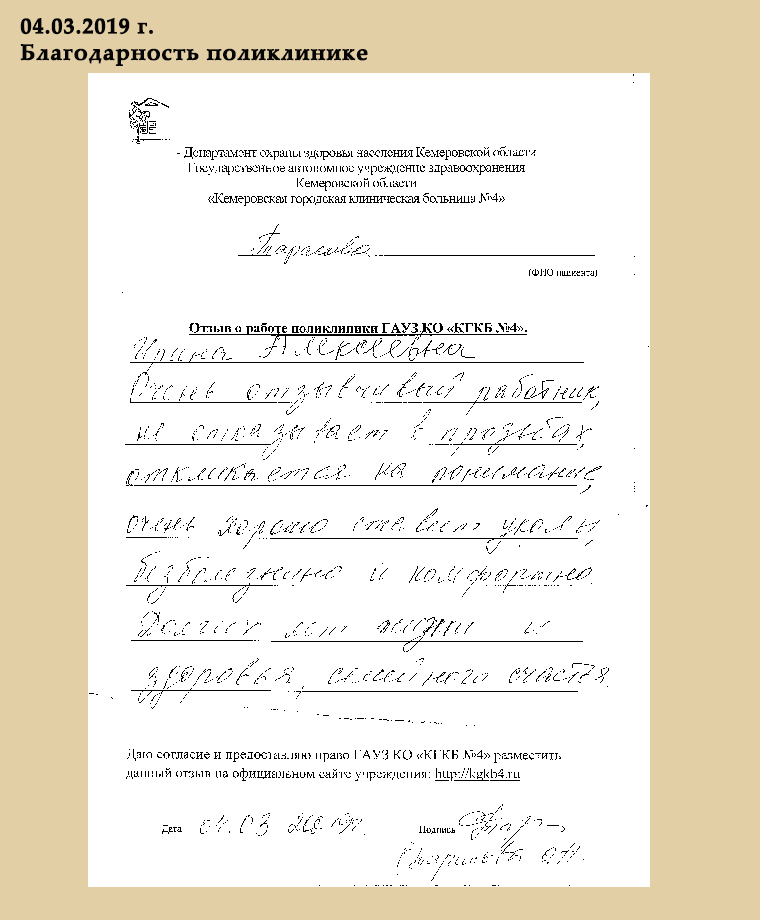 04.03.2019 г.
Благодарность поликлинике
- Департамент охраны здоровья населения Кемеровской области
Государственное автономное учреждение здравоохранения
Кемеровской области
«Кемеровская городская клиническая больница №4»
(ФИО пациента)
Отзыв о работе поликлиники ГАУЗ КО «КГКБ №4».
Ирина Алексеевна
Очень отзывчивый работник,
не отказывает в прозьбах,
откликается на понимание,
очень хорошо ставит уколы,
безболезненно и комфортно.
Долгих лет жизни и
здоровья, семейного счастья.
Даю согласие и предоставляю право ГАУЗ КО «КГКБ №4» разместить
данный отзыв на официальном сайте учреждения: http://kgkb4.ru
Дата 04.03 2019г. Подпись